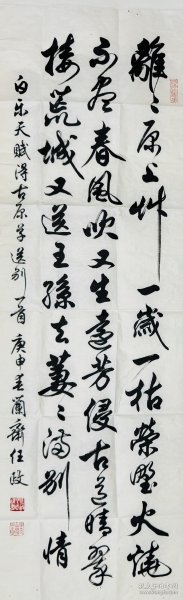 離〻原上艸一歲一枯榮野火燒
不盡春風吹又生遠芳侵古道晴翠
接荒城又送王孫去萋〻滿別情
白樂天賦得古原草送別一首 庚申春蘭齋任政